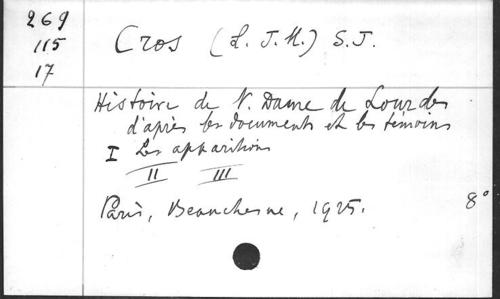 269
115
17
Cros (L. J. M.) S.J.
Histoire de N. Dame de Lourdes
d'après les documents et les témoins
I Les apparitions
II III
Paris, Beauchesne, 1925.
8°